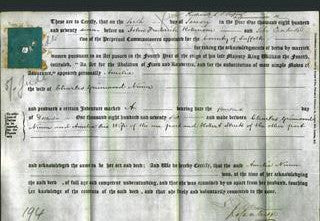 These are to Certify, that on the tenth day of January in the Year One thousand eight hundred
and seventy seven before John Frederick Robinson and
two of the Perpetual Commissioners appointed for the County of Suffolk
for taking the acknowledgments of deeds by married
women pursuant to an Act passed in the Fourth Year of the reign of his late Majesty King William the Fourth,
intituled "An Act for the Abolition of Fines and Recoveries, and for the substitution of more simple Modes of
Assurance," appeared personally Amelia
the wife of Charles Nunn
and produced a certain Indenture marked A bearing date the second day
of One thousand eight hundred and seventy and made between Charles
Nunn and Amelia his Wife of the one part and Robert of the other part
and acknowledged the same to be her act and deed; And We do hereby Certify, that the said Amelia Nunn
was, at the time of her acknowledging
the said deed, of full age and competent understanding, and that she was examined by us apart from her husband, touching
her knowledge of the contents of the said deed, and that she freely and voluntarily consented to the same.
194